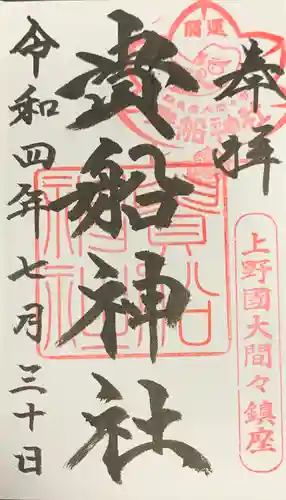 奉拝
開運
貴船神社
上野國大間々鎮座
貴船神社
貴船神社
令和四年七月三十日